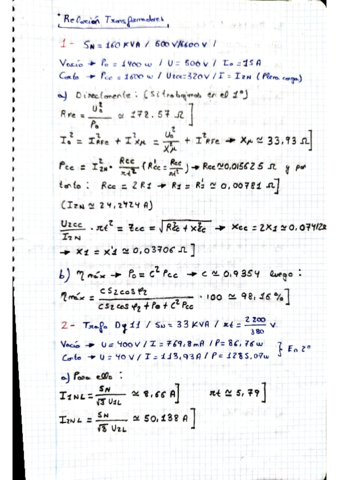 Relación Transformadores
1- SN = 160 KVA / 600V/6600 V /
Vacío → P0 = 1400 W / U = 500V / I0 = 15A
Corto → Pcc = 1600 W / Ucc = 320V / I = I2N (Plena carga)
a) Directamente: (Si trabajamos en el 1º)
RFe = U0² / P0 ≃ 178.57 Ω]
I0² = I²RFe + I²Xμ = U0²/X²μ + I²RFe → Xμ ≃ 33,93 Ω]
Pcc = I²2N · Rcc/rt² (R'cc = Rcc/rt²) → Rcc ≃ 0,015625 Ω y por
tanto: Rcc = 2R1 → R1 = R'2 ≃ 0,00781 Ω]
(I2N ≃ 24,2424A)
Ucc/I2N · rt² = Zcc = √(R²cc + X²cc) → Xcc = 2X1 ≃ 0,07412Ω
→ X1 = X'2 ≃ 0,03706 Ω]
b) η máx → P0 = C² Pcc → C ≃ 0,9354 luego:
η máx = C S2 cos φ2 / (C S2 cos φ2 + P0 + C² Pcc) · 100 ≃ 98,16 %]
2- Trafo Dy11 / SN = 33 KVA / rt = 2200/380 V.
Vacío → U = 400V / I = 769,8mA / P = 86,76W
Corto → U = 40V / I = 113,93A / P = 1285,07W ] En 2º
a) Para ello:
I1NL = SN / √3 U1L ≃ 8,66 A] rt ≃ 5,79]
I2NL = SN / √3 U2L ≃ 50,138 A]